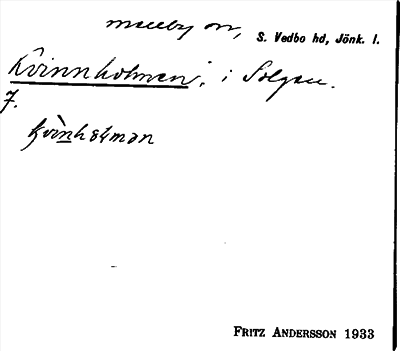 Malleby sn, S. Vedbo hd, Jönk. l.
Kvinnholmen, i Solgen.
7.
kvìnhɷlmən
FRITZ ANDERSSON 1933